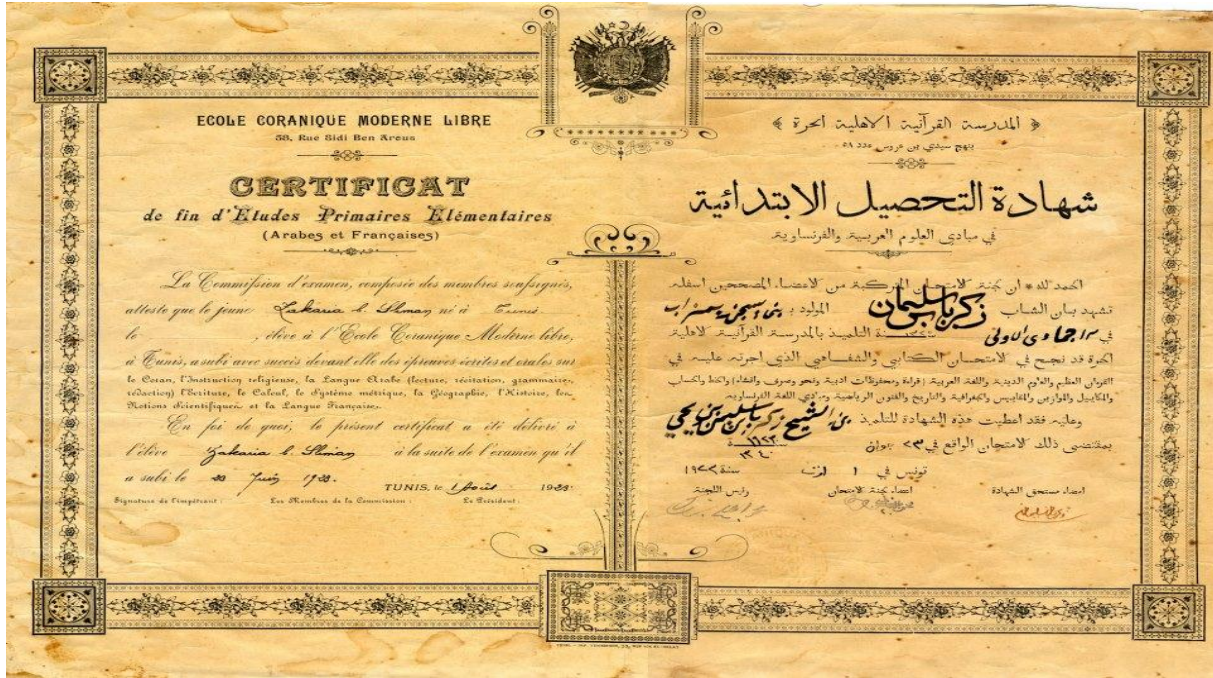 ECOLE CORANIQUE MODERNE LIBRE
58, Rue Sidi Ben Arous
CERTIFICAT
de fin d'Etudes Primaires Elémentaires
(Arabes et Françaises)
La Commission d'examen, composée des membres soussignés,
atteste que le jeune Zakaria b. Sliman né à Tunis
le , élève à l'Ecole Coranique Moderne libre,
à Tunis, a subi avec succès devant elle des épreuves écrites et orales sur
le Coran, l'Instruction religieuse, la Langue Arabe (lecture, récitation, grammaire,
rédaction) l'Ecriture, le Calcul, le Système métrique, la Géographie, l'Histoire, les
Notions Scientifiques et la Langue Française.
En foi de quoi, le présent certificat a été délivré à
l'élève Zakaria b. Sliman à la suite de l'examen qu'il
a subi le Juin
TUNIS, le 1 Août
Signature de l'impétrant : Les Membres de la Commission : Le Président :
المدرسة القرآنية الاهلية الحرة
بنهج سيدي بن عروس عدد ٥٨
شهادة التحصيل الابتدائية
في مبادي العلوم العربية والفرنساوية
الحمد لله ان لجنة الامتحان المركبة من الاعضاء المصححين اسفله
تشهد بان الشاب زكرياء بن سليمان المولود
في جمادى الاولى التلميذ بالمدرسة القرآنية الاهلية
الحرة قد نجح في الامتحان الكتابي والشفاهي الذي اجرته عليه في
القرءان العظيم والعلوم الدينية واللغة العربية (قراءة ومحفوظات ادبية ونحو وصرف وانشاء) والخط والحساب
والمكاييل والموازين والمقاييس والجغرافية والتاريخ والفنون الرياضية ومبادي اللغة الفرنساوية
وعليه فقد اعطيت هذه الشهادة للتلميذ
بمقتضى ذلك الامتحان الواقع في ٢٣ جوان
تونس في ١ اوت سنة ١٩٢٢
امضاء مستحق الشهادة اعضاء لجنة الامتحان رئيس اللجنة